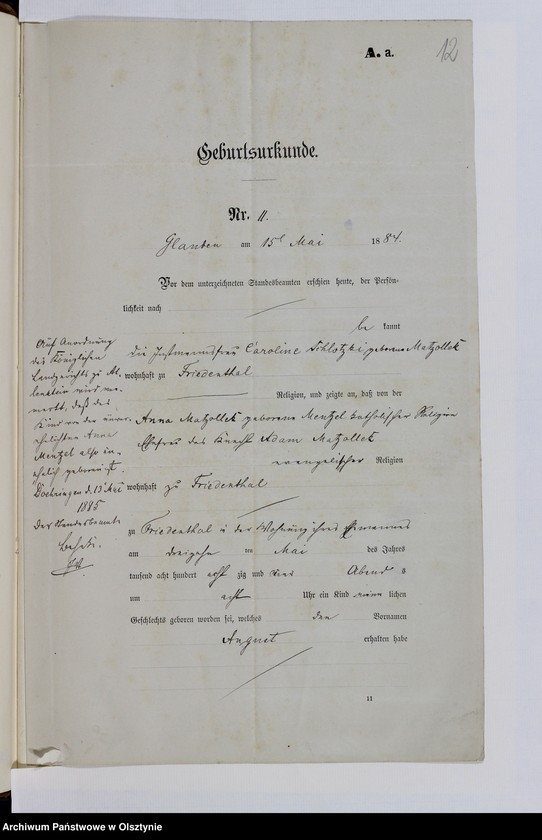 A. a.
12
Geburtsurkunde.
Nr. 11.
Glauben am 15t Mai 1884.
Vor dem unterzeichneten Standesbeamten erschien heute, der Persön-
lichkeit nach
be kannt
die Instmannsfrau Caroline geborene Matzollek
wohnhaft zu Friedenthal
Religion, und zeigte an, daß von der
Anna Matzollek geborene Menzel katholischer Religion
Ehefrau des Knecht Adam Matzollek
evangelischer Religion
wohnhaft zu Friedenthal
zu Friedenthal in der Wohnung ihres Ehemannes
am dreizehn ten Mai des Jahres
tausend acht hundert acht zig und vier Abend s
um acht Uhr ein Kind männ lichen
Geschlechts geboren worden sei, welches den Vornamen
August erhalten habe
11
Auf Anordnung
des Königlichen
Landgerichts zu Al-
lenstein wird ver-
merkt, daß das
Kind von der unver-
ehelichten Anna
Menzel also un-
ehelich geboren ist.
Doehringen d. 13 Mai
1885
Der Standesbeamte
Archiwum Państwowe w Olsztynie